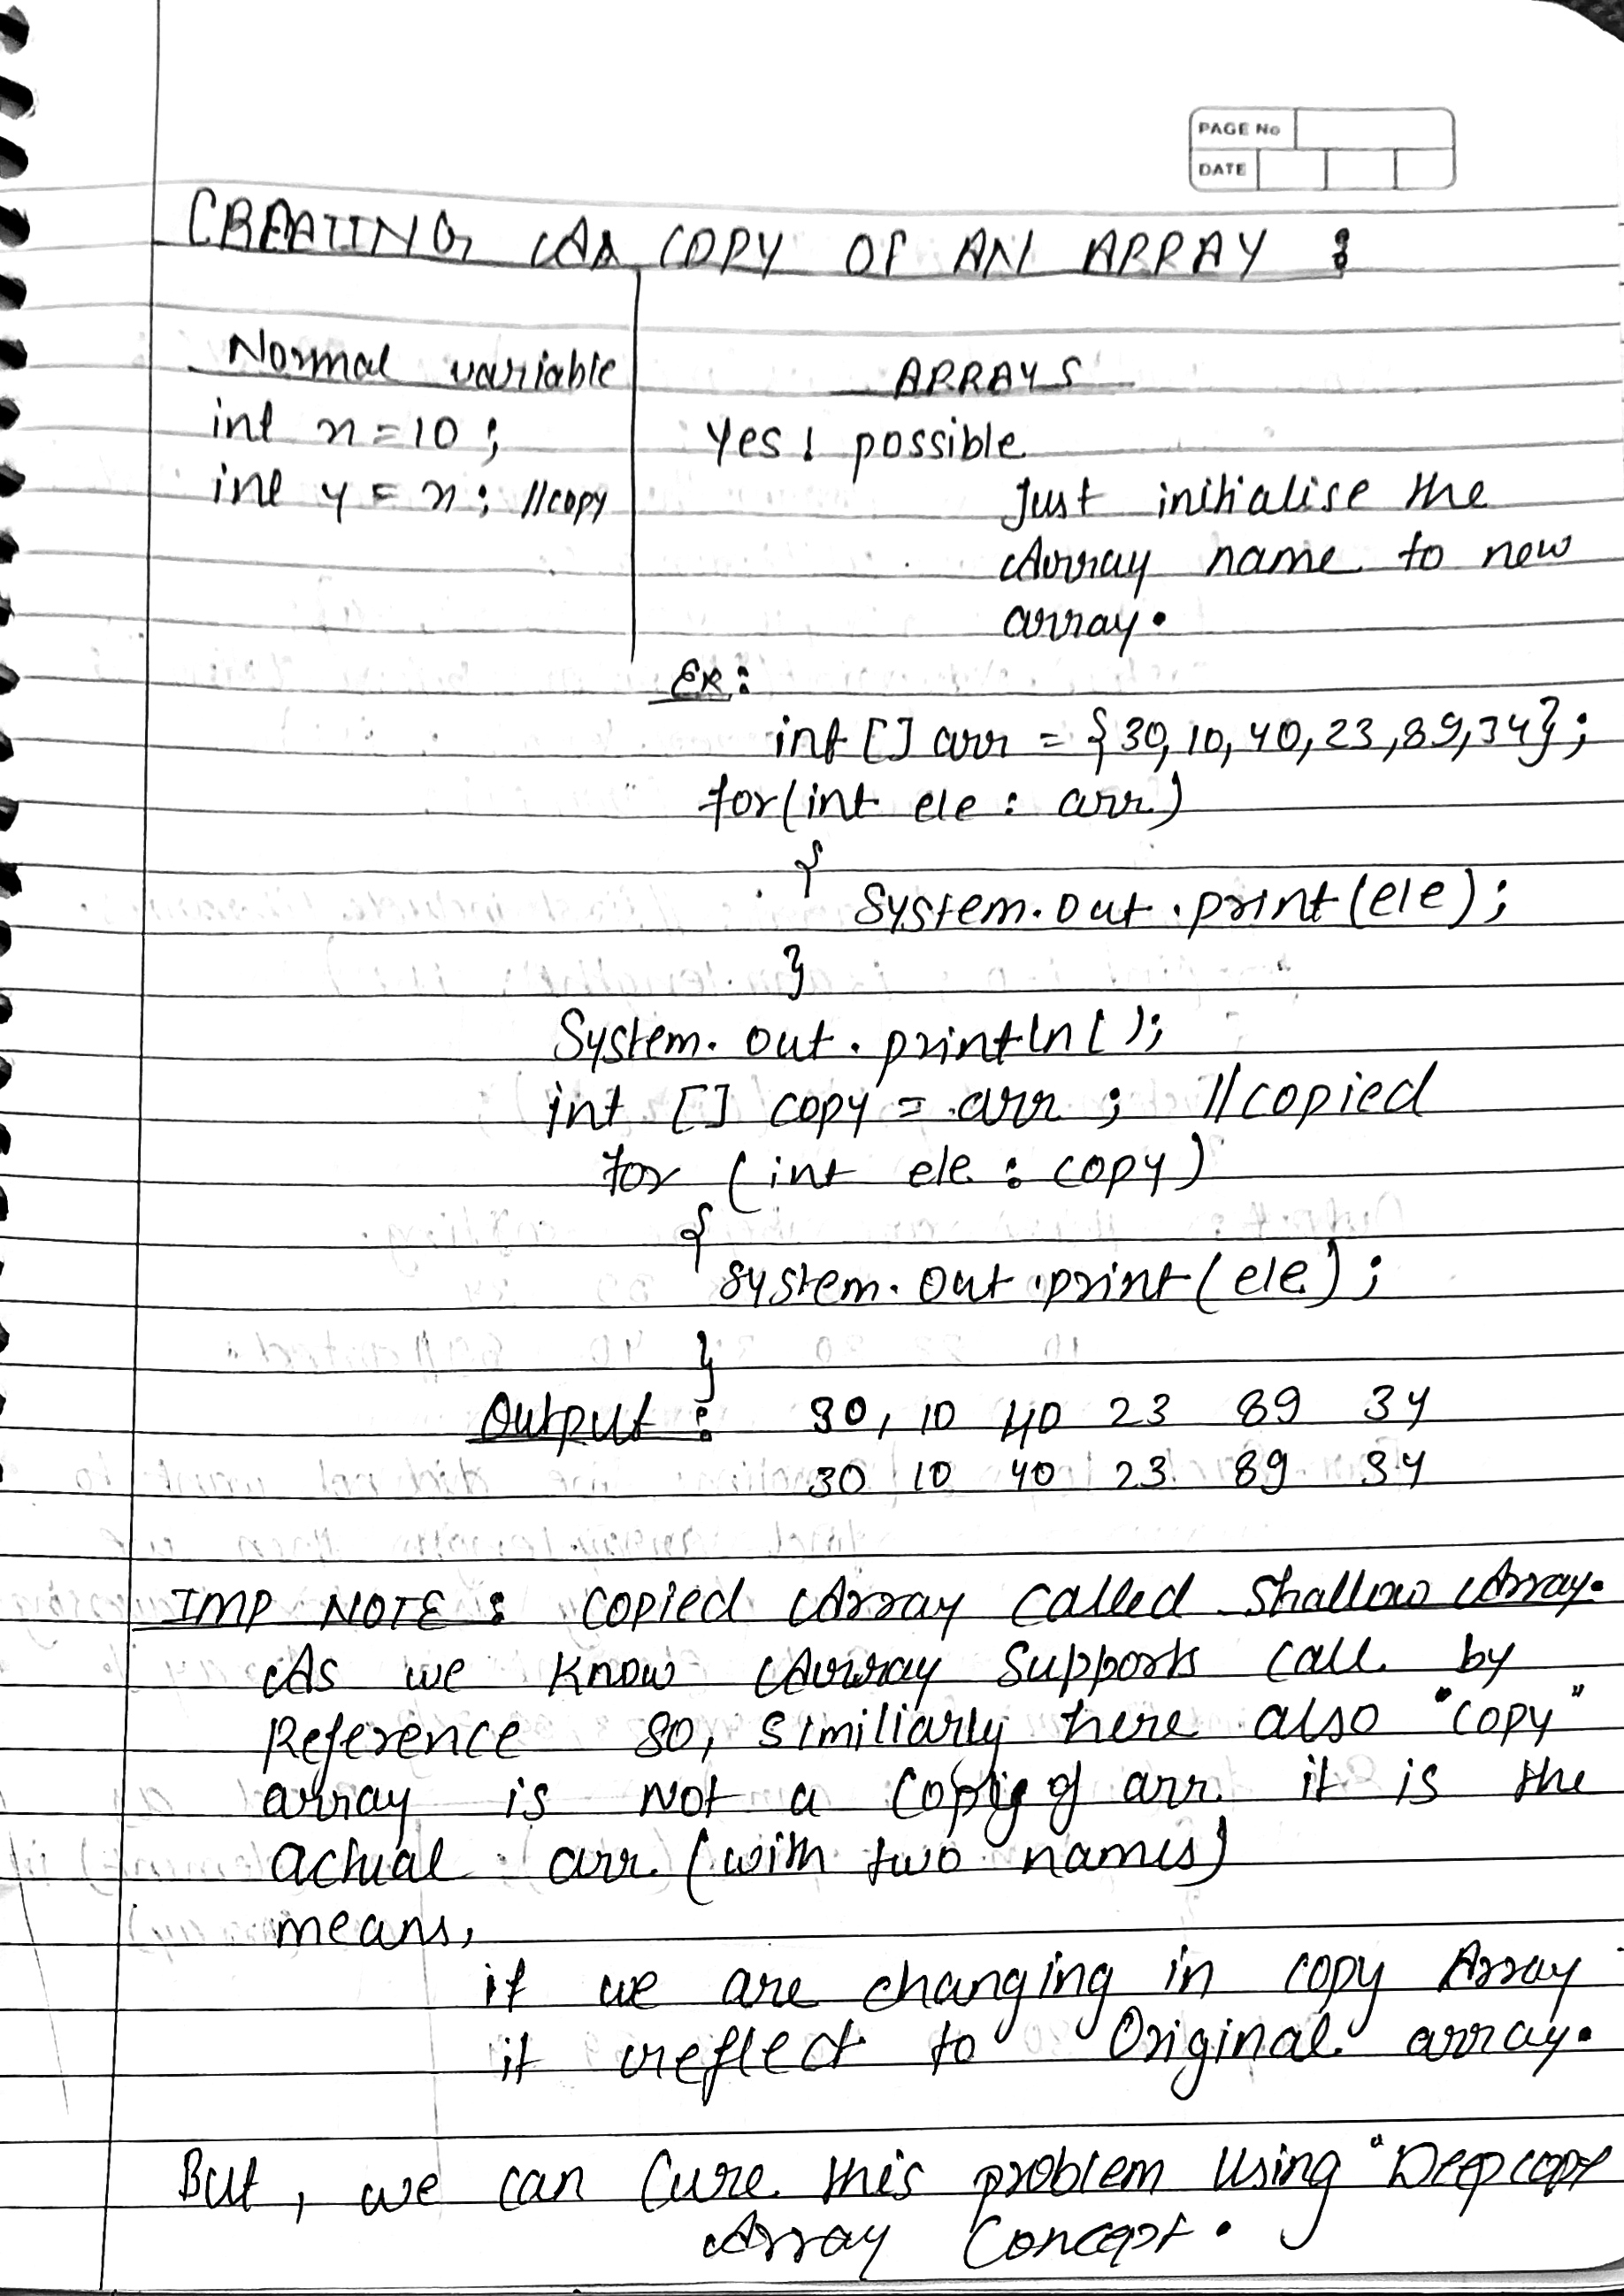 PAGE No
DATE
CREATING A COPY OF AN ARRAY :
Normal variable
int x = 10 ;
int y = x ; //copy
ARRAYS
Yes! possible
Just initialise the
Array name to new
array.
Ex :
int [] arr = {30, 10, 40, 23, 89, 34};
for(int ele : arr)
{
System.out.print(ele);
}
System.out.println();
int [] copy = arr ; //copied
for (int ele : copy)
{
System.out.print(ele);
}
Output : 30, 10 40 23 89 34
30 10 40 23 89 34
IMP NOTE : Copied Array called Shallow Array.
As we know Array Supports call by
Reference so, similiarly here also "copy"
array is Not a Copy of arr it is the
actual arr. (with two names)
means,
if we are changing in copy Array
it reflect to Original array.
But, we can Cure this problem Using "Deepcopy
Array Concept.